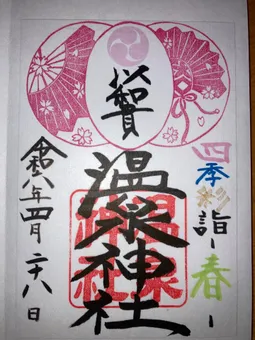 四季彩詣 ー 春 ー
温泉神社
令和八年四月二十八日
温泉神社